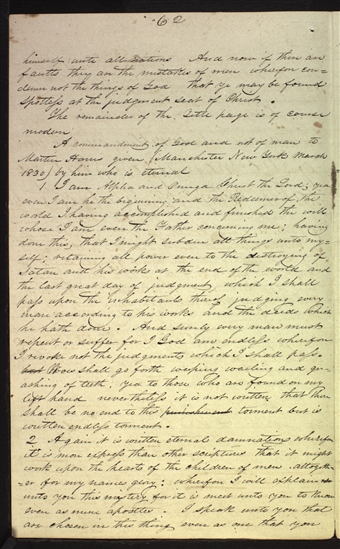 62
himself unto all nations And now if there are
faults they are the mistakes of men wherefore con-
demn not the things of God that ye may be found
spotless at the judgment seat of Christ.
The remainder of the Title page is of course
modern
A commandment of God and not of man to
Martin Harris given (Manchester New York March
1830) by him who is eternal
1. I am Alpha and Omega Christ the Lord; yea
even I am he the beginning and the Redeemer of the
world I having accomplished and finished the will
whose I am even the Father concerning me; having
done this, that I might subdue all things unto my-
self; retaining all power even to the destroying of
Satan and his works at the end of the world and
the last great day of judgment which I shall
pass upon the inhabitants thereof judging every
man according to his works and the deeds which
he hath done. And surely every man must
repent or suffer for I God am endless wherefore
I revoke not the judgments which I shall pass.
but Woes shall go forth weeping wailing and gn-
ashing of teeth, yea to those who are found on my
left hand nevertheless it is not written that there
shall be no end to this punishment torment but is
written endless torment.
2. Again it is written eternal damnations wherefore
it is more express than other scriptures that it might
work upon the hearts of the children of men altogeth-
-er for my names glory: wherefore I will explain
unto you this mystery for it is meet unto you to know
even as mine apostles. I speak unto you that
are chosen in this thing even as one that you